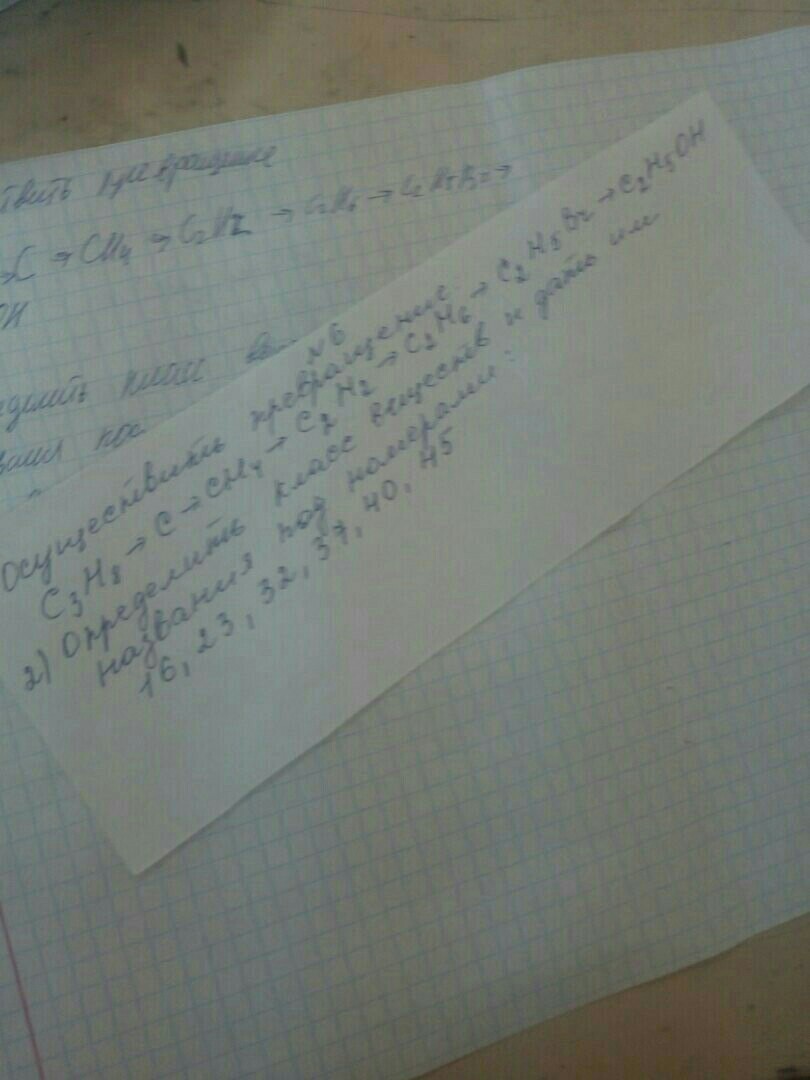 твить превращение
→C → CH4 → C2H2 → C2H6 → C2H5Br →
OH
делить класс
N6
Осуществить превращение
C3H8 → C → CH4 → C2H2 → C2H6 → C2H5Br → C2H5OH
2) Определить класс веществ и дать им
названия под номерами:
16, 23, 32, 37, 40, 45